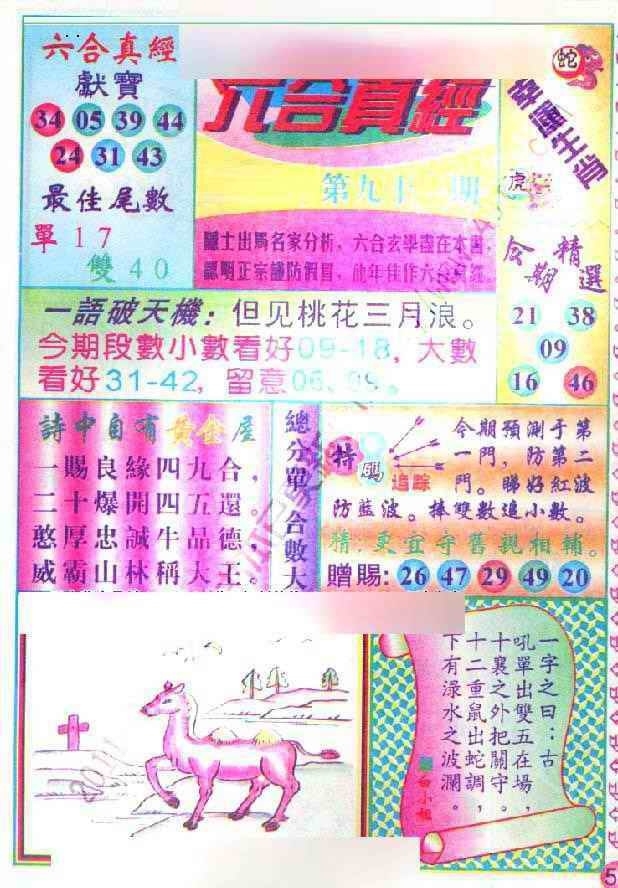 六合真經
獻寶
34 05 39 44
24 31 43
最佳尾數
單17
雙40
六合真經
第九十一期
隱士出馬名家分析，六合玄學盡在本書，
認明正宗謹防假冒，他年佳作六合真經。
蛇
幸運生肖
虎
今期精選
21 38
09
16 46
一語破天機：但见桃花三月浪。
今期段數小數看好09-18，大數
看好31-42，留意06、09。
詩中自有黃金屋
一賜良緣四九合，
二十爆開四五還。
憨厚忠誠牛品德，
威霸山林稱大王。
總分單
合數大
特碼
追踪
今期預測于第
一門，防第二
門。睇好紅波
防藍波。捧雙數追小數。
精，更宜守舊親相輔。
贈賜：26 47 29 49 20
一字之曰：古
吼單出雙五在場，
十襄之外把關守。
十二重鼠出蛇調，
下有淥水之波瀾。
白小姐
5